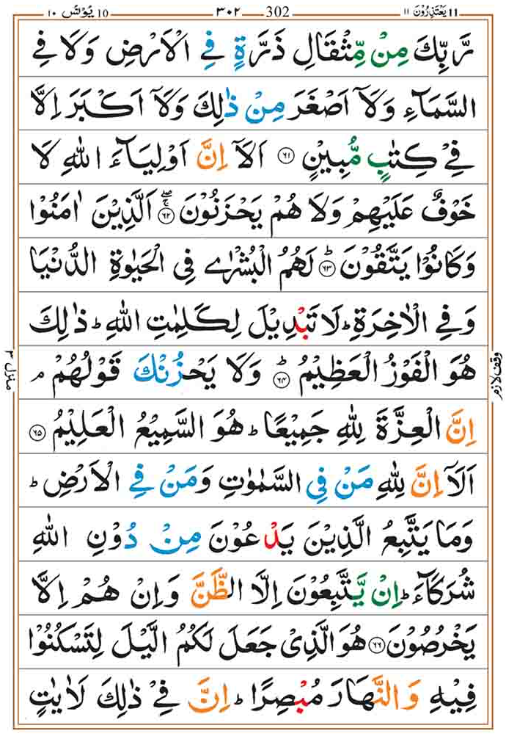 ١١ يَعْتَذِرُوْنَ ١١ 302 ٣٠٢ 10 يُوْنُس ١٠
رَّبِّكَ مِنْ مِّثْقَالِ ذَرَّةٍ فِى الْاَرْضِ وَلَا فِى
السَّمَآءِ وَلَاۤ اَصْغَرَ مِنْ ذٰلِكَ وَلَاۤ اَكْبَرَ اِلَّا
فِىْ كِتٰبٍ مُّبِيْنٍ ۞٦١ اَلَاۤ اِنَّ اَوْلِيَآءَ اللّٰهِ لَا
خَوْفٌ عَلَيْهِمْ وَلَا هُمْ يَحْزَنُوْنَ ۞٦٢ۚۖ اَلَّذِيْنَ اٰمَنُوْا
وَكَانُوْا يَتَّقُوْنَ ۞٦٣ؕ لَهُمُ الْبُشْرٰى فِى الْحَيٰوةِ الدُّنْيَا
وَفِى الْاٰخِرَةِ ؕ لَا تَبْدِيْلَ لِكَلِمٰتِ اللّٰهِ ؕ ذٰلِكَ
هُوَ الْفَوْزُ الْعَظِيْمُ ۞٦٤ؕ وَلَا يَحْزُنْكَ قَوْلُهُمْ ۘ
اِنَّ الْعِزَّةَ لِلّٰهِ جَمِيْعًا ؕ هُوَ السَّمِيْعُ الْعَلِيْمُ ۞٦٥
اَلَاۤ اِنَّ لِلّٰهِ مَنْ فِى السَّمٰوٰتِ وَمَنْ فِى الْاَرْضِ ؕ
وَمَا يَتَّبِعُ الَّذِيْنَ يَدْعُوْنَ مِنْ دُوْنِ اللّٰهِ
شُرَكَآءَ ؕ اِنْ يَّتَّبِعُوْنَ اِلَّا الظَّنَّ وَاِنْ هُمْ اِلَّا
يَخْرُصُوْنَ ۞٦٦ هُوَ الَّذِىْ جَعَلَ لَكُمُ الَّيْلَ لِتَسْكُنُوْا
فِيْهِ وَالنَّهَارَ مُبْصِرًا ؕ اِنَّ فِىْ ذٰلِكَ لَاٰيٰتٍ
وقف لازم
منزل ٣